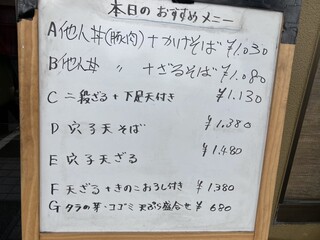 本日のおすすめメニー
A 他人丼(豚肉)+かけそば ¥1.030
B 他人丼 〃 +ざるそば ¥1.080
C 二段ざる+下足天付き ¥1.130
D 穴子天そば ¥1.380
E 穴子天ざる ¥1.480
F 天ざる+きのこおろし付き ¥1.380
G タラの芽・コゴミ天ぷら盛合せ ¥680